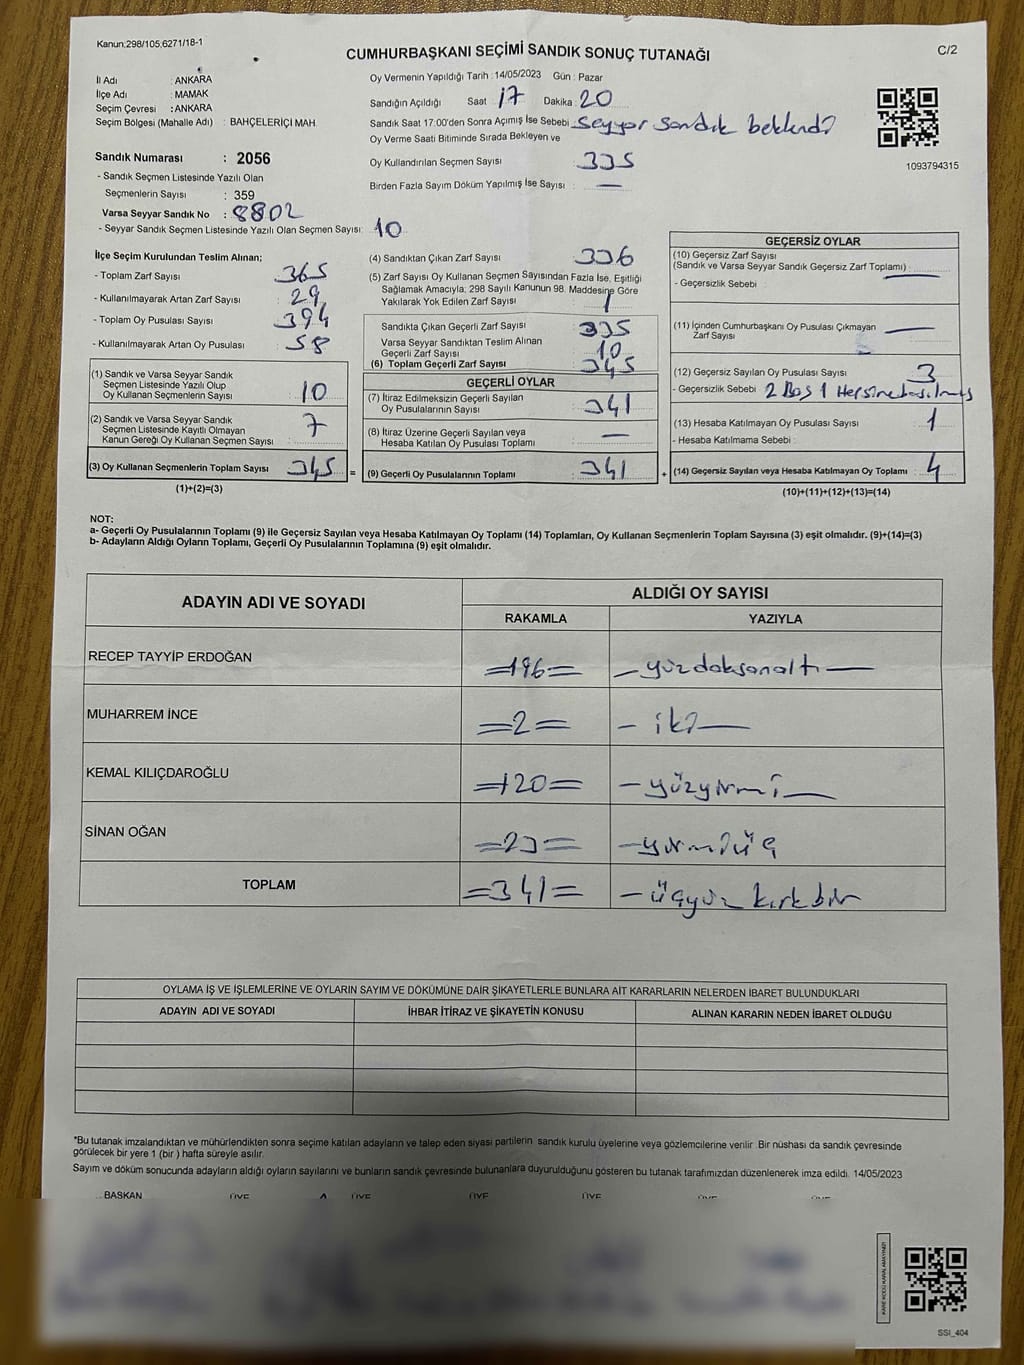 Kanun:298/105,6271/18-1
C/2
CUMHURBAŞKANI SEÇİMİ SANDIK SONUÇ TUTANAĞI
İl Adı : ANKARA
İlçe Adı : MAMAK
Seçim Çevresi : ANKARA
Seçim Bölgesi (Mahalle Adı) : BAHÇELERİÇİ MAH.
Oy Vermenin Yapıldığı Tarih : 14/05/2023 Gün : Pazar
Sandığın Açıldığı Saat 17 Dakika : 20
Sandık Saat 17:00'den Sonra Açımış İse Sebebi Seyyar sandık beklendi
Oy Verme Saati Bitiminde Sırada Bekleyen ve
Oy Kullandırılan Seçmen Sayısı : 335
Birden Fazla Sayım Döküm Yapılmış İse Sayısı : —
1093794315
Sandık Numarası : 2056
- Sandık Seçmen Listesinde Yazılı Olan
Seçmenlerin Sayısı : 359
Varsa Seyyar Sandık No : 8802
- Seyyar Sandık Seçmen Listesinde Yazılı Olan Seçmen Sayısı: 10
İlçe Seçim Kurulundan Teslim Alınan;
- Toplam Zarf Sayısı : 365
- Kullanılmayarak Artan Zarf Sayısı : 29
- Toplam Oy Pusulası Sayısı : 394
- Kullanılmayarak Artan Oy Pusulası : 58
(1) Sandık ve Varsa Seyyar Sandık
Seçmen Listesinde Yazılı Olup
Oy Kullanan Seçmenlerin Sayısı : 10
(2) Sandık ve Varsa Seyyar Sandık
Seçmen Listesinde Kayıtlı Olmayan
Kanun Gereği Oy Kullanan Seçmen Sayısı : 7
(3) Oy Kullanan Seçmenlerin Toplam Sayısı : 345 =
(1)+(2)=(3)
(4) Sandıktan Çıkan Zarf Sayısı : 336
(5) Zarf Sayısı Oy Kullanan Seçmen Sayısından Fazla İse, Eşitliği
Sağlamak Amacıyla; 298 Sayılı Kanunun 98. Maddesine Göre
Yakılarak Yok Edilen Zarf Sayısı : 1
Sandıkta Çıkan Geçerli Zarf Sayısı : 335
Varsa Seyyar Sandıktan Teslim Alınan
Geçerli Zarf Sayısı : 10
(6) Toplam Geçerli Zarf Sayısı : 345
GEÇERLİ OYLAR
(7) İtiraz Edilmeksizin Geçerli Sayılan
Oy Pusulalarının Sayısı : 341
(8) İtiraz Üzerine Geçerli Sayılan veya
Hesaba Katılan Oy Pusulası Toplamı : —
(9) Geçerli Oy Pusulalarının Toplamı : 341 +
GEÇERSİZ OYLAR
(10) Geçersiz Zarf Sayısı
(Sandık ve Varsa Seyyar Sandık Geçersiz Zarf Toplamı) : —
- Geçersizlik Sebebi :
(11) İçinden Cumhurbaşkanı Oy Pusulası Çıkmayan : —
Zarf Sayısı
(12) Geçersiz Sayılan Oy Pusulası Sayısı : 3
- Geçersizlik Sebebi : 2 Boş 1 Hepsine basılmış
(13) Hesaba Katılmayan Oy Pusulası Sayısı : 1
- Hesaba Katılmama Sebebi :
(14) Geçersiz Sayılan veya Hesaba Katılmayan Oy Toplamı : 4
(10)+(11)+(12)+(13)=(14)
NOT:
a- Geçerli Oy Pusulalarının Toplamı (9) ile Geçersiz Sayılan veya Hesaba Katılmayan Oy Toplamı (14) Toplamları, Oy Kullanan Seçmenlerin Toplam Sayısına (3) eşit olmalıdır. (9)+(14)=(3)
b- Adayların Aldığı Oyların Toplamı, Geçerli Oy Pusulalarının Toplamına (9) eşit olmalıdır.
ADAYIN ADI VE SOYADI
ALDIĞI OY SAYISI
RAKAMLA YAZIYLA
RECEP TAYYİP ERDOĞAN =196= — yüzdoksanaltı —
MUHARREM İNCE =2= — iki —
KEMAL KILIÇDAROĞLU =120= — yüzyirmi —
SİNAN OĞAN =23= — yirmiüç
TOPLAM =341= — üçyüz kırkbir
OYLAMA İŞ VE İŞLEMLERİNE VE OYLARIN SAYIM VE DÖKÜMÜNE DAİR ŞİKAYETLERLE BUNLARA AİT KARARLARIN NELERDEN İBARET BULUNDUKLARI
ADAYIN ADI VE SOYADI İHBAR İTİRAZ VE ŞİKAYETİN KONUSU ALINAN KARARIN NEDEN İBARET OLDUĞU
*Bu tutanak imzalandıktan ve mühürlendikten sonra seçime katılan adayların ve talep eden siyasi partilerin sandık kurulu üyelerine veya gözlemcilerine verilir. Bir nüshası da sandık çevresinde
görülecek bir yere 1 (bir ) hafta süreyle asılır.
Sayım ve döküm sonucunda adayların aldığı oyların sayılarını ve bunların sandık çevresinde bulunanlara duyurulduğunu gösteren bu tutanak tarafımızdan düzenlenerek imza edildi. 14/05/2023
BAŞKAN ÜYE ÜYE ÜYE ÜYE ÜYE ÜYE
SSI_404